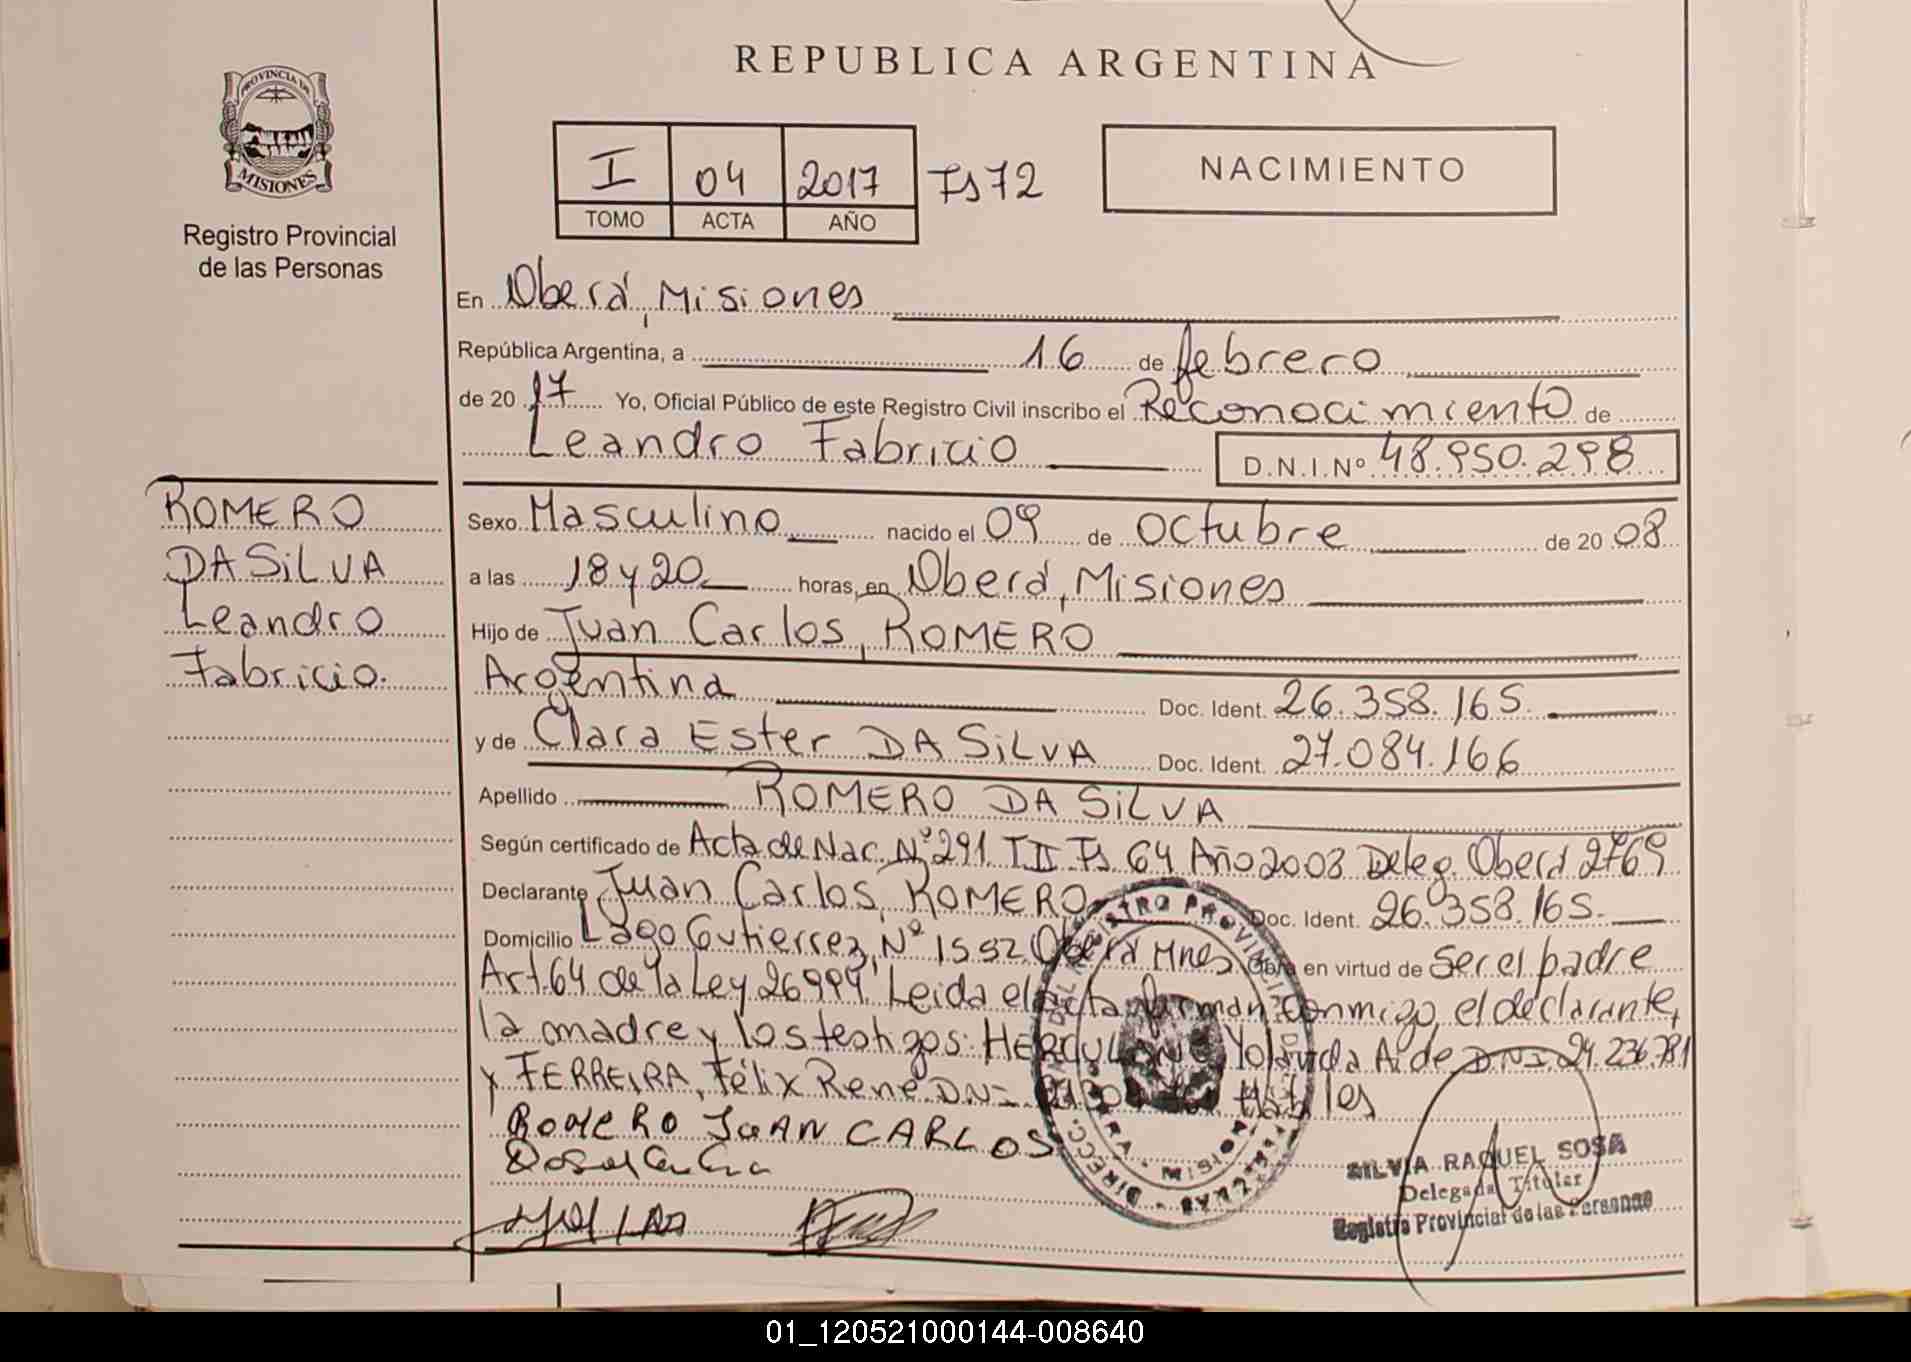 REPUBLICA ARGENTINA
PROVINCIA DE
MISIONES
Registro Provincial
de las Personas
I 04 2017 Fs 72
TOMO ACTA AÑO
NACIMIENTO
En Oberá, Misiones
República Argentina, a 16 de febrero
de 20 17 Yo, Oficial Público de este Registro Civil inscribo el Reconocimiento de
Leandro Fabricio D.N.I.Nº 48.950.298
ROMERO
DA SiLVA
Leandro
Fabricio.
Sexo Masculino nacido el 09 de Octubre de 20 08
a las 18 y 20 horas, en Oberá, Misiones
Hijo de Juan Carlos, ROMERO
Argentina Doc. Ident. 26.358.165.
y de Clara Ester DA SiLVA Doc. Ident. 27.084.166
Apellido ROMERO DA SiLVA
Según certificado de Acta de Nac. Nº 291 T II Fs 64 Año 2008 Deleg. Oberá 2769
Declarante Juan Carlos, ROMERO Doc. Ident. 26.358.165.
Domicilio Lago Gutierrez, Nº 1552 Oberá Mnes Obra en virtud de Ser el padre
Art. 64 de la Ley 26994 Leida el acta firman conmigo, el declarante,
la madre y los testigos: Yolanda Aide DNI 24.236.781
y FERREIRA, Félix René DNI Hábiles
ROMERO JUAN CARLOS
SILVIA RAQUEL SOSA
Delegada Titular
Registro Provincial de las Personas
01_120521000144-008640